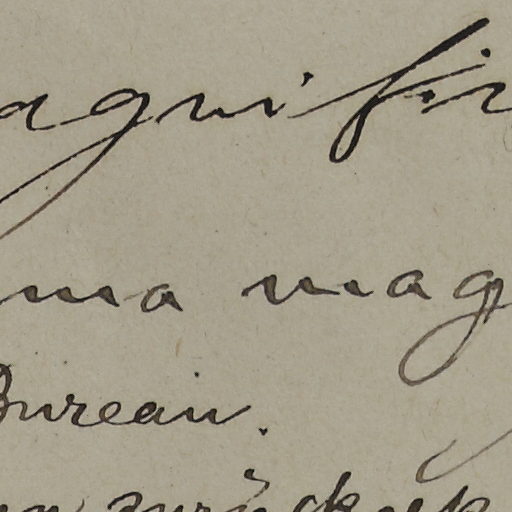 agnifi
ma mag
Bureau.
zurück